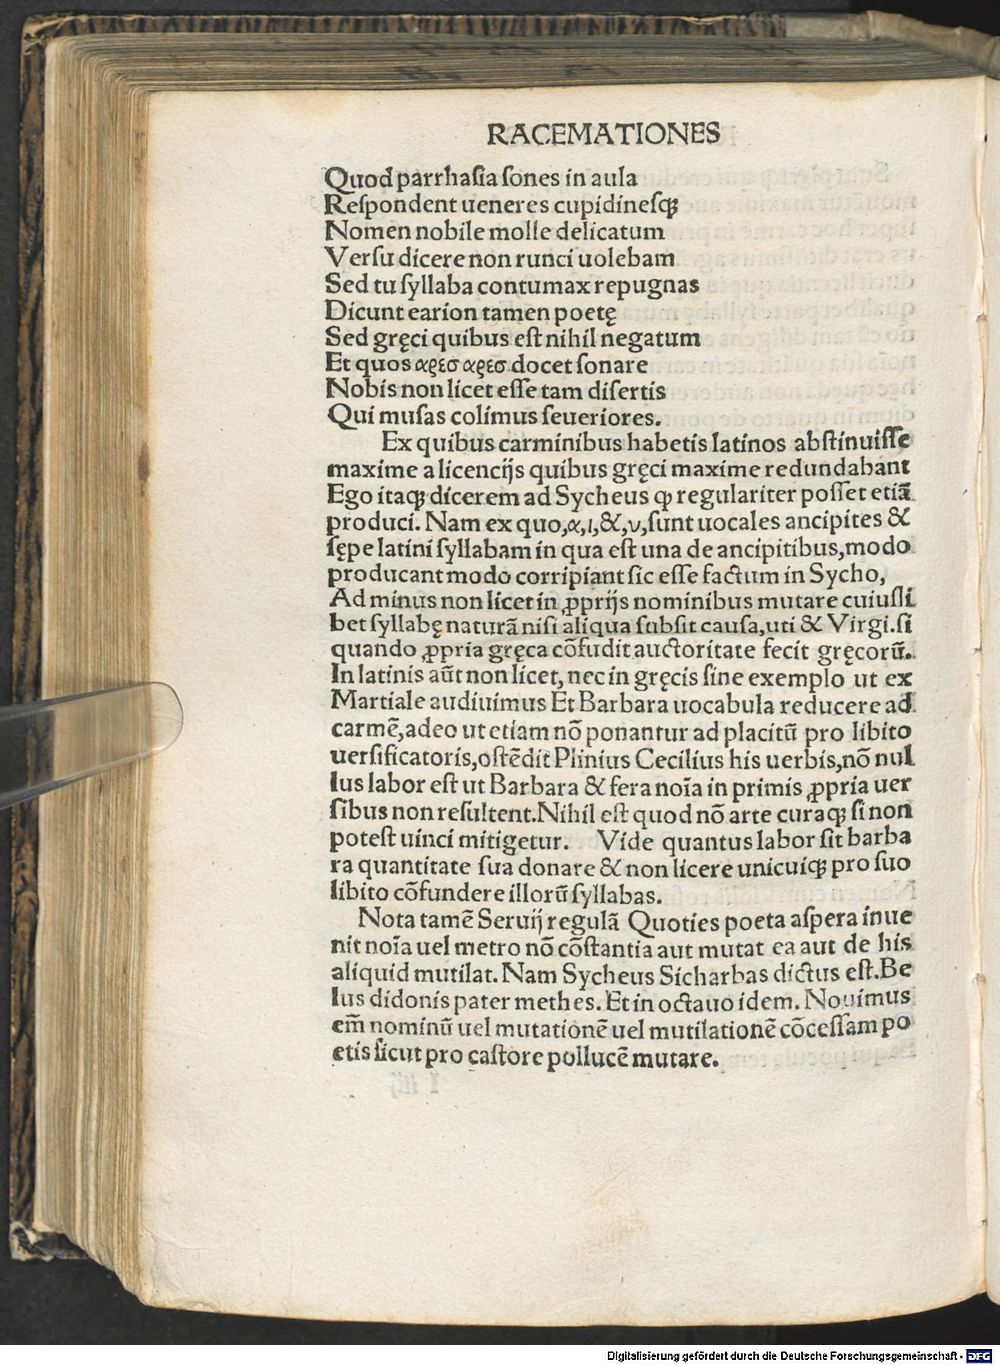 RACEMATIONES
Quod parrhasia sones in aula
Respondent ueneres cupidinesq;
Nomen nobile molle delicatum
Versu dicere non runci uolebam
Sed tu syllaba contumax repugnas
Dicunt earion tamen poetę
Sed gręci quibus est nihil negatum
Et quos αρεσ αρεσ docet sonare
Nobis non licet esse tam disertis
Qui musas colimus seueriores.
Ex quibus carminibus habetis latinos abstinuisse
maxime a licencijs quibus gręci maxime redundabant
Ego itaq; dicerem ad Sycheus ꝙ regulariter posset etiā
produci. Nam ex quo, α, ι, &, ν, sunt uocales ancipites &
sępe latini syllabam in qua est una de ancipitibus, modo
producant modo corripiant sic esse factum in Sycho,
Ad minus non licet in ꝓprijs nominibus mutare cuiusli
bet syllabę naturā nisi aliqua subsit causa, uti & Virgi. si
quando ꝓpria gręca cōfudit auctoritate fecit gręcorū.
In latinis aūt non licet, nec in gręcis sine exemplo ut ex
Martiale audiuimus Et Barbara uocabula reducere ad
carmē, adeo ut etiam nō ponantur ad placitū pro libito
uersificatoris, ostēdit Plinius Cecilius his uerbis, nō nul
lus labor est ut Barbara & fera noīa in primis ꝓpria uer
sibus non resultent. Nihil est quod nō arte curaq; si non
potest uinci mitigetur. Vide quantus labor sit barba
ra quantitate sua donare & non licere unicuiq; pro suo
libito cōfundere illorū syllabas.
Nota tamē Seruij regulā Quoties poeta aspera inue
nit noīa uel metro nō cōstantia aut mutat ea aut de his
aliquid mutilat. Nam Sycheus Sicharbas dictus est. Be
lus didonis pater methes. Et in octauo idem. Nouimus
em̄ nominū uel mutationē uel mutilationē cōcessam po
etis sicut pro castore pollucē mutare.
Digitalisierung gefördert durch die Deutsche Forschungsgemeinschaft - DFG